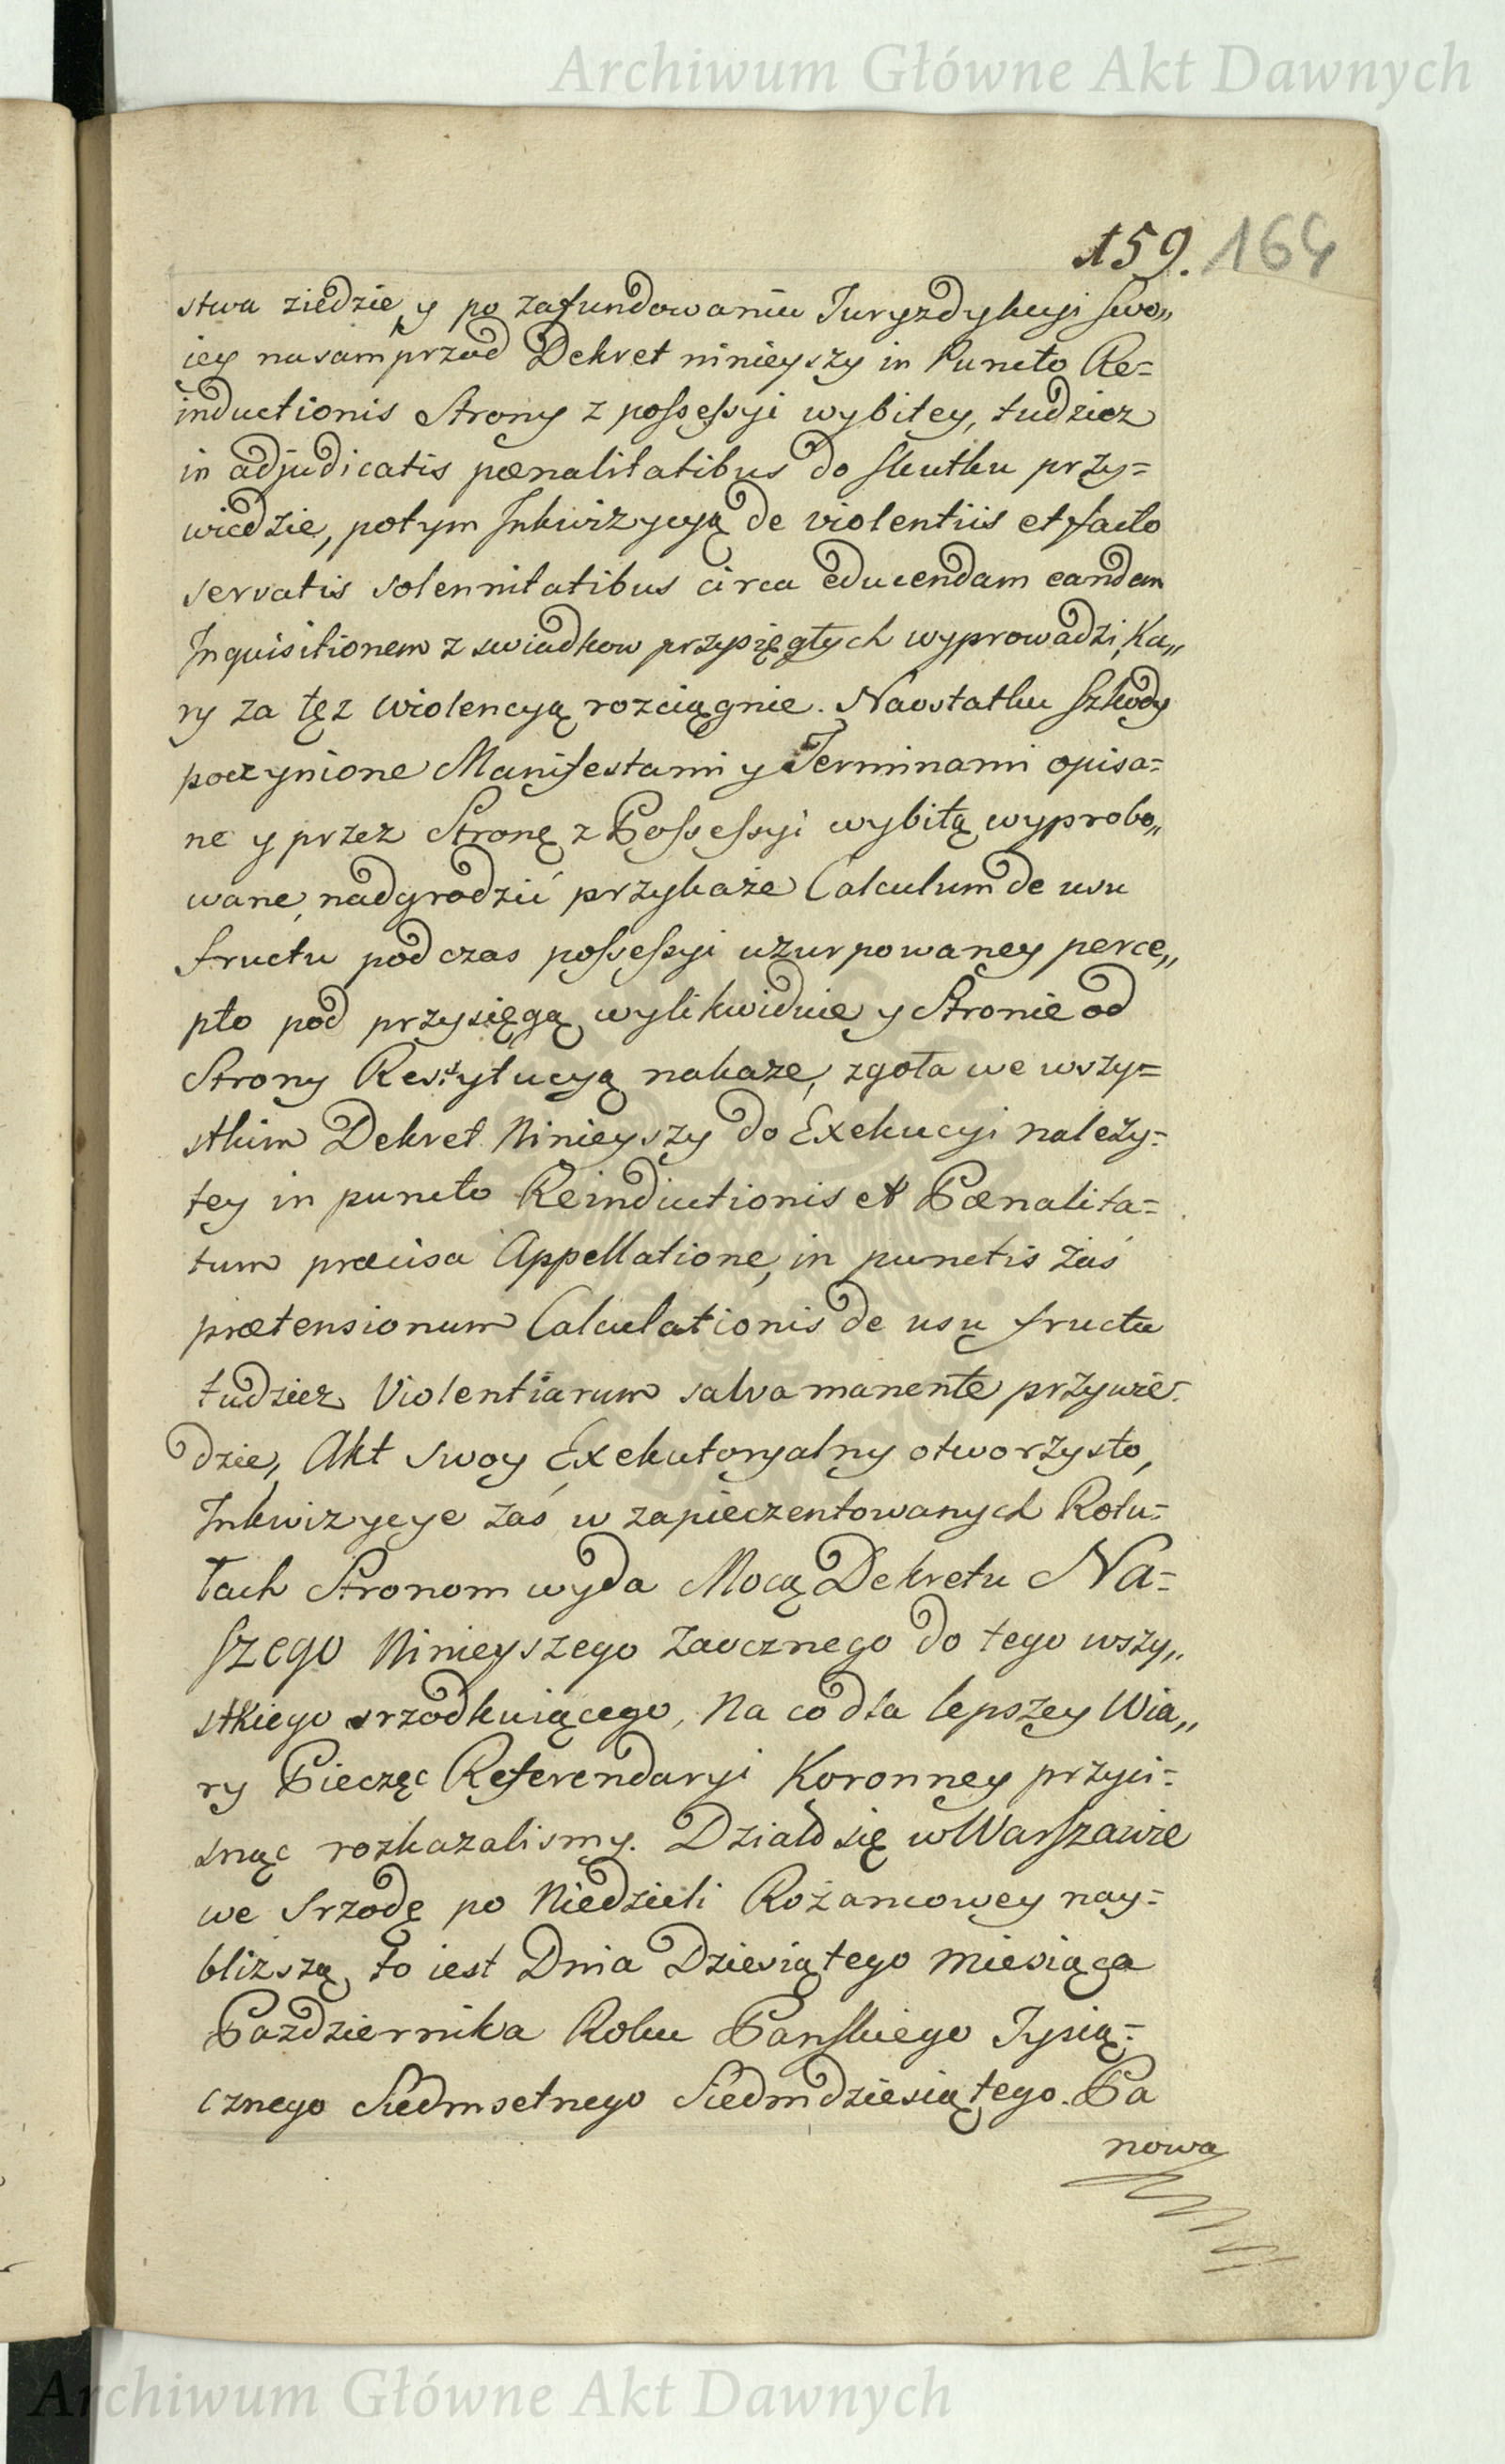 Archiwum Główne Akt Dawnych
159. 164
stwa ziedzie, y po zafundowaniu Juryzdykcyi swo„
iey nasamprzod Dekret ninieyszy in Puncto Re=
inductionis Strony z possessyi wybitey, tudziez
in adjudicatis pœnalitatibus do skutku przy=
wiedzie, potym Inkwizycyą de violentiis et facto
servatis solennitatibus circa educendam eandem
Inquisitionem z swiadkow przysięgłych wyprowadzi, Ka„
ry za tęz wiolencyą rozciągnie. Naostatku szkody
poczynione Manifestami y Terminami opisa=
ne y przez Stronę z Possessyi wybitą wyprobo„
wane, nadgrodzić przykaże Calculum de usu
fructu podczas possessyi uzurpowaney perce„
pto pod przysięgą wylikwiduie y Stronie od
Strony Restytucyą nakaze, zgoła we wszy=
stkim Dekret Ninieyszy do Exekucyi należy=
tey in puncto Reinductionis et Pœnalita=
tum præcisa Appellatione, in punctis żaś
prætensionum Calculationis de usu fructu
tudziez Violentiarum salva manente przywie=
dzie, Akt swoy Exekutoryalny otworzysto,
Inkwizycye zaś w zapieczentowanych Rotu=
łach Stronom wyda Mocą Dekretu Na=
szego Ninieyszego Zaocznego do tego wszy„
stkiego srzodkuiącego, Na co dla lepszey Wia„
ry Pieczęc Referendaryi Koronney przyci=
snąc rozkazalismy. Działo się w Warszawie
we Srzodę po Niedzieli Rożancowey nay=
bliższą, to iest Dnia Dziesiątego miesiąca
Pazdziernika Roku Panskiego Tysią=
cznego Siedmsetnego Siedmdziesiątego. Pa
nowa
Archiwum Główne Akt Dawnych